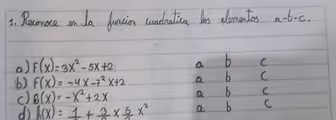 1. Reconoce en la funcion cuadratica los elementos a-b-c.
a) f(x)=3x²-5x+2 a b c
b) f(x)=-4x-7²x+2 a b c
c) G(x)=-x²+2x a b c
d) h(x)= 1/4 + 3/2 x 5/2 x² a b c